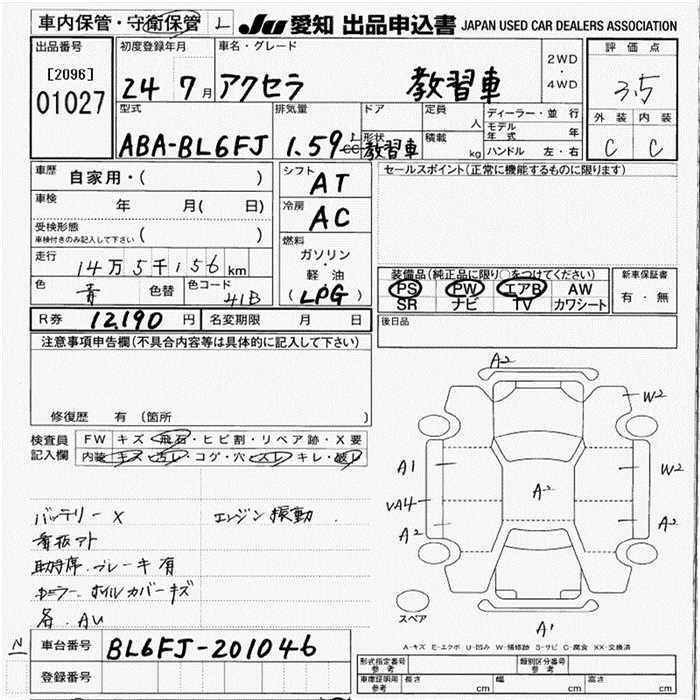 車内保管・守衛保管 L JU 愛知 出品申込書 JAPAN USED CAR DEALERS ASSOCIATION
出品番号 初度登録年月 車名・グレード 2WD・4WD 評価点
[2096] 24 7月 アクセラ 教習車 3.5
01027
型式 排気量 ドア 定員 人 ディーラー・並行 外装 内装
ABA-BL6FJ 1.59 L cc 形状 教習車 積載 kg モデル年式 年 C C
ハンドル 左・右
車歴 自家用・( ) シフト AT セールスポイント(正常に機能するものに限ります)
車検 年 月( 日) 冷房 AC
受検形態 ( )
車検付きのみ記入して下さい
燃料 ガソリン・軽油 (LPG)
走行 14万5千156km
色 青 色替 色コード 41B
装備品(純正品に限り○をつけてください) 新車保証書
PS PW エアB AW 有・無
SR ナビ TV カワシート
R券 12,190円 名変期限 月 日 後日品
注意事項申告欄(不具合内容等は具体的に記入して下さい)
修復歴 有(箇所
検査員 FW キズ・飛石・ヒビ割・リペア跡・X要
記入欄 内装 キズ・汚レ・コゲ・穴・スレ・キレ・破レ
A2
W2
A1 W2
A2
VA4
A2 A2
バッテリー X エンジン振動
看板アト
助手席ブレーキ有
ホイルカバーキズ
各 AU
スペア
A1
A-キズ E-エクボ U-凹み W-補修跡 S-サビ C-腐食 XX-交換済
N 車台番号 BL6FJ-201046
登録番号
形式指定番号 参考 類別区分番号 参考
車庫証明用 参考 長さ cm 幅 cm 高さ cm